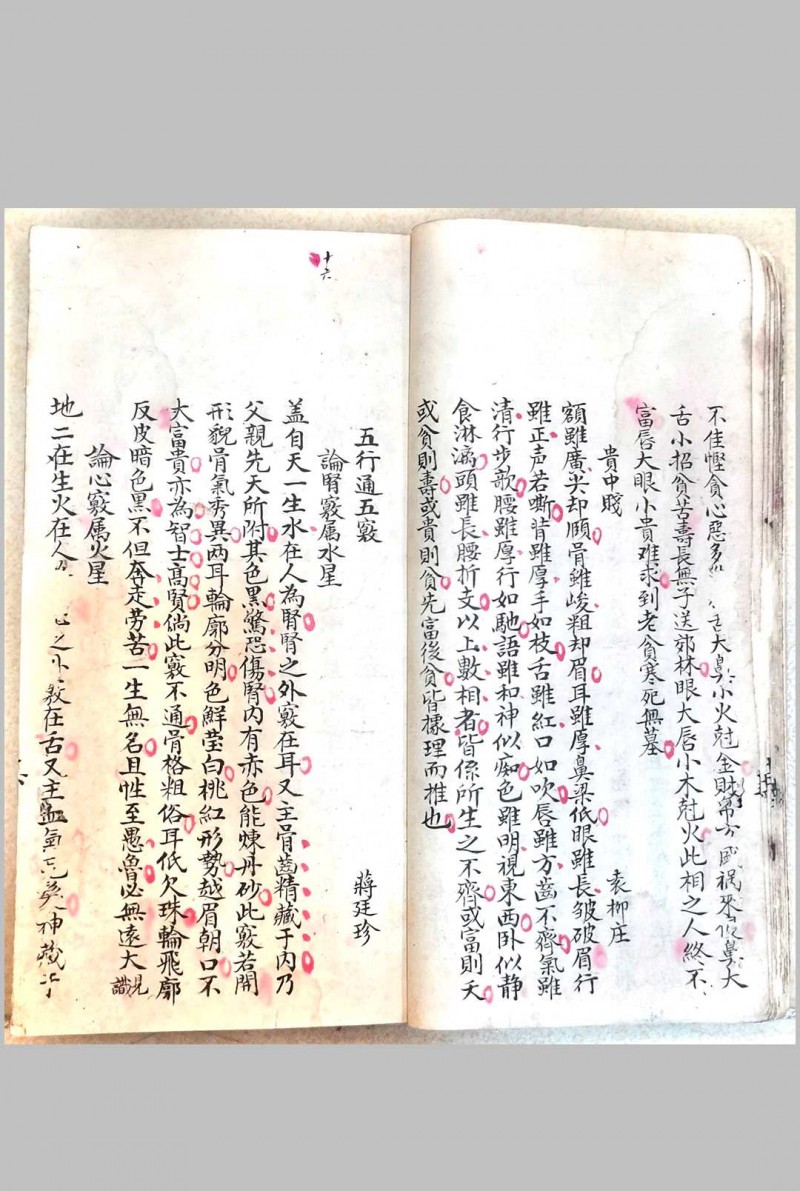 不佳慳貪心惡多 舌大鼻小火尅金財帛 禍來 鼻大
舌小招貧苦壽長無子送郊林眼大唇小木尅火此相之人終不
富唇大眼小貴难求到老貧寒死無墓
貴中賤 袁柳庄
額雖廣尖却頤骨雖峻粗却眉耳雖厚鼻梁低眼雖長皱破眉行
雖正声若嘶背雖厚手如枝舌雖紅口如吹唇雖方齒不齊氣雖
清行步欹腰雖厚行如馳語雖和神似痴色雖明視東西卧似静
食淋漓頭雖長腰折支以上數相者皆係所生之不齊或富則夭
或貧則壽或貴則貧先富後貧皆據理而推也
十六
五行通五竅 蔣廷珍
論腎竅属水星
盖自天一生水在人為腎腎之外竅在耳又主骨齒精藏于内乃
父親先天所附其色黑驚恐傷腎内有赤色能煉丹砂此竅若開
形貌骨氣秀異两耳輪廓分明色鮮莹白桃紅形勢越眉朝口不
大富貴亦為智士高賢倘此竅不通骨格粗俗耳低欠珠輪飛廓
反皮暗色黑不但奔走劳苦一生無名且性至愚魯必無遠大見識
論心竅属火星
地二在生火在人 之外竅在舌又主血氣 神藏